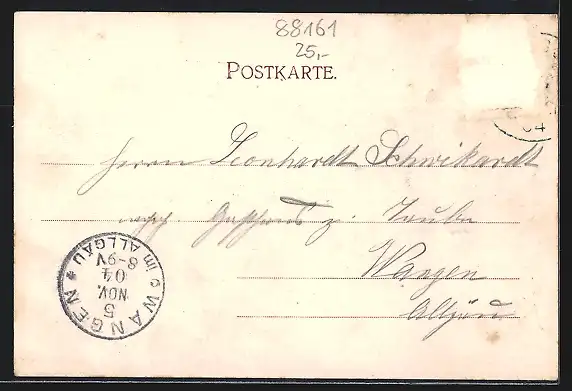 88161
25,-
POSTKARTE.
Herrn Leonhardt Schwikardt
Gasthaus z. Taube
Wangen
Allgäu
WANGEN im ALLGÄU
5
NOV.
04
8-9V
04